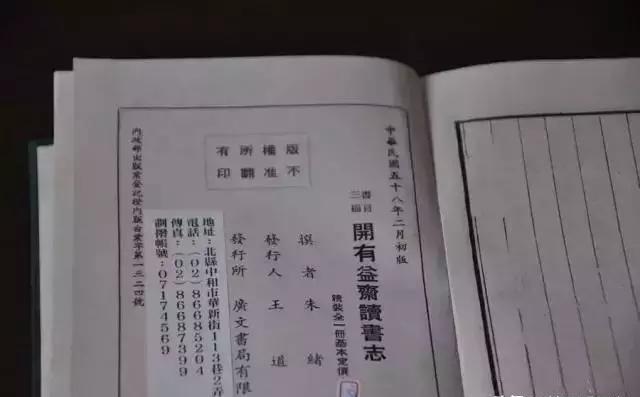 中華民國五十八年二月初版
書目三編
開有益齋讀書志
精裝全一冊基本定價
撰者朱緒
發行人王道
發行所廣文書局有限
版權所有
不准翻印
地址:北縣中和市華新街113巷2弄
電話:(02)86685204
傳真:(02)86687399
劃撥帳號:07174569
內政部出版業登記證內版台業字第一三二四號